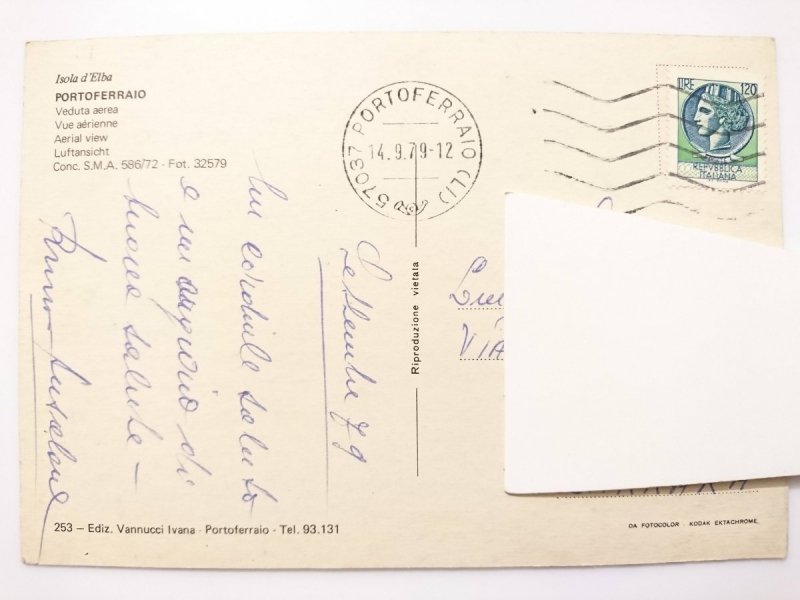 Isola d'Elba
PORTOFERRAIO
Veduta aerea
Vue aérienne
Aerial view
Luftansicht
Conc. S.M.A. 586/72 - Fot. 32579
57037 PORTOFERRAIO (LI)
14.9.79-12
LIRE 120
REPVBBLICA
ITALIANA
Settembre 79
Un cordiale saluto
e un augurio di
buona salute -
Riproduzione vietata
VIA
253 - Ediz. Vannucci Ivana - Portoferraio - Tel. 93.131
DA FOTOCOLOR - KODAK EKTACHROME